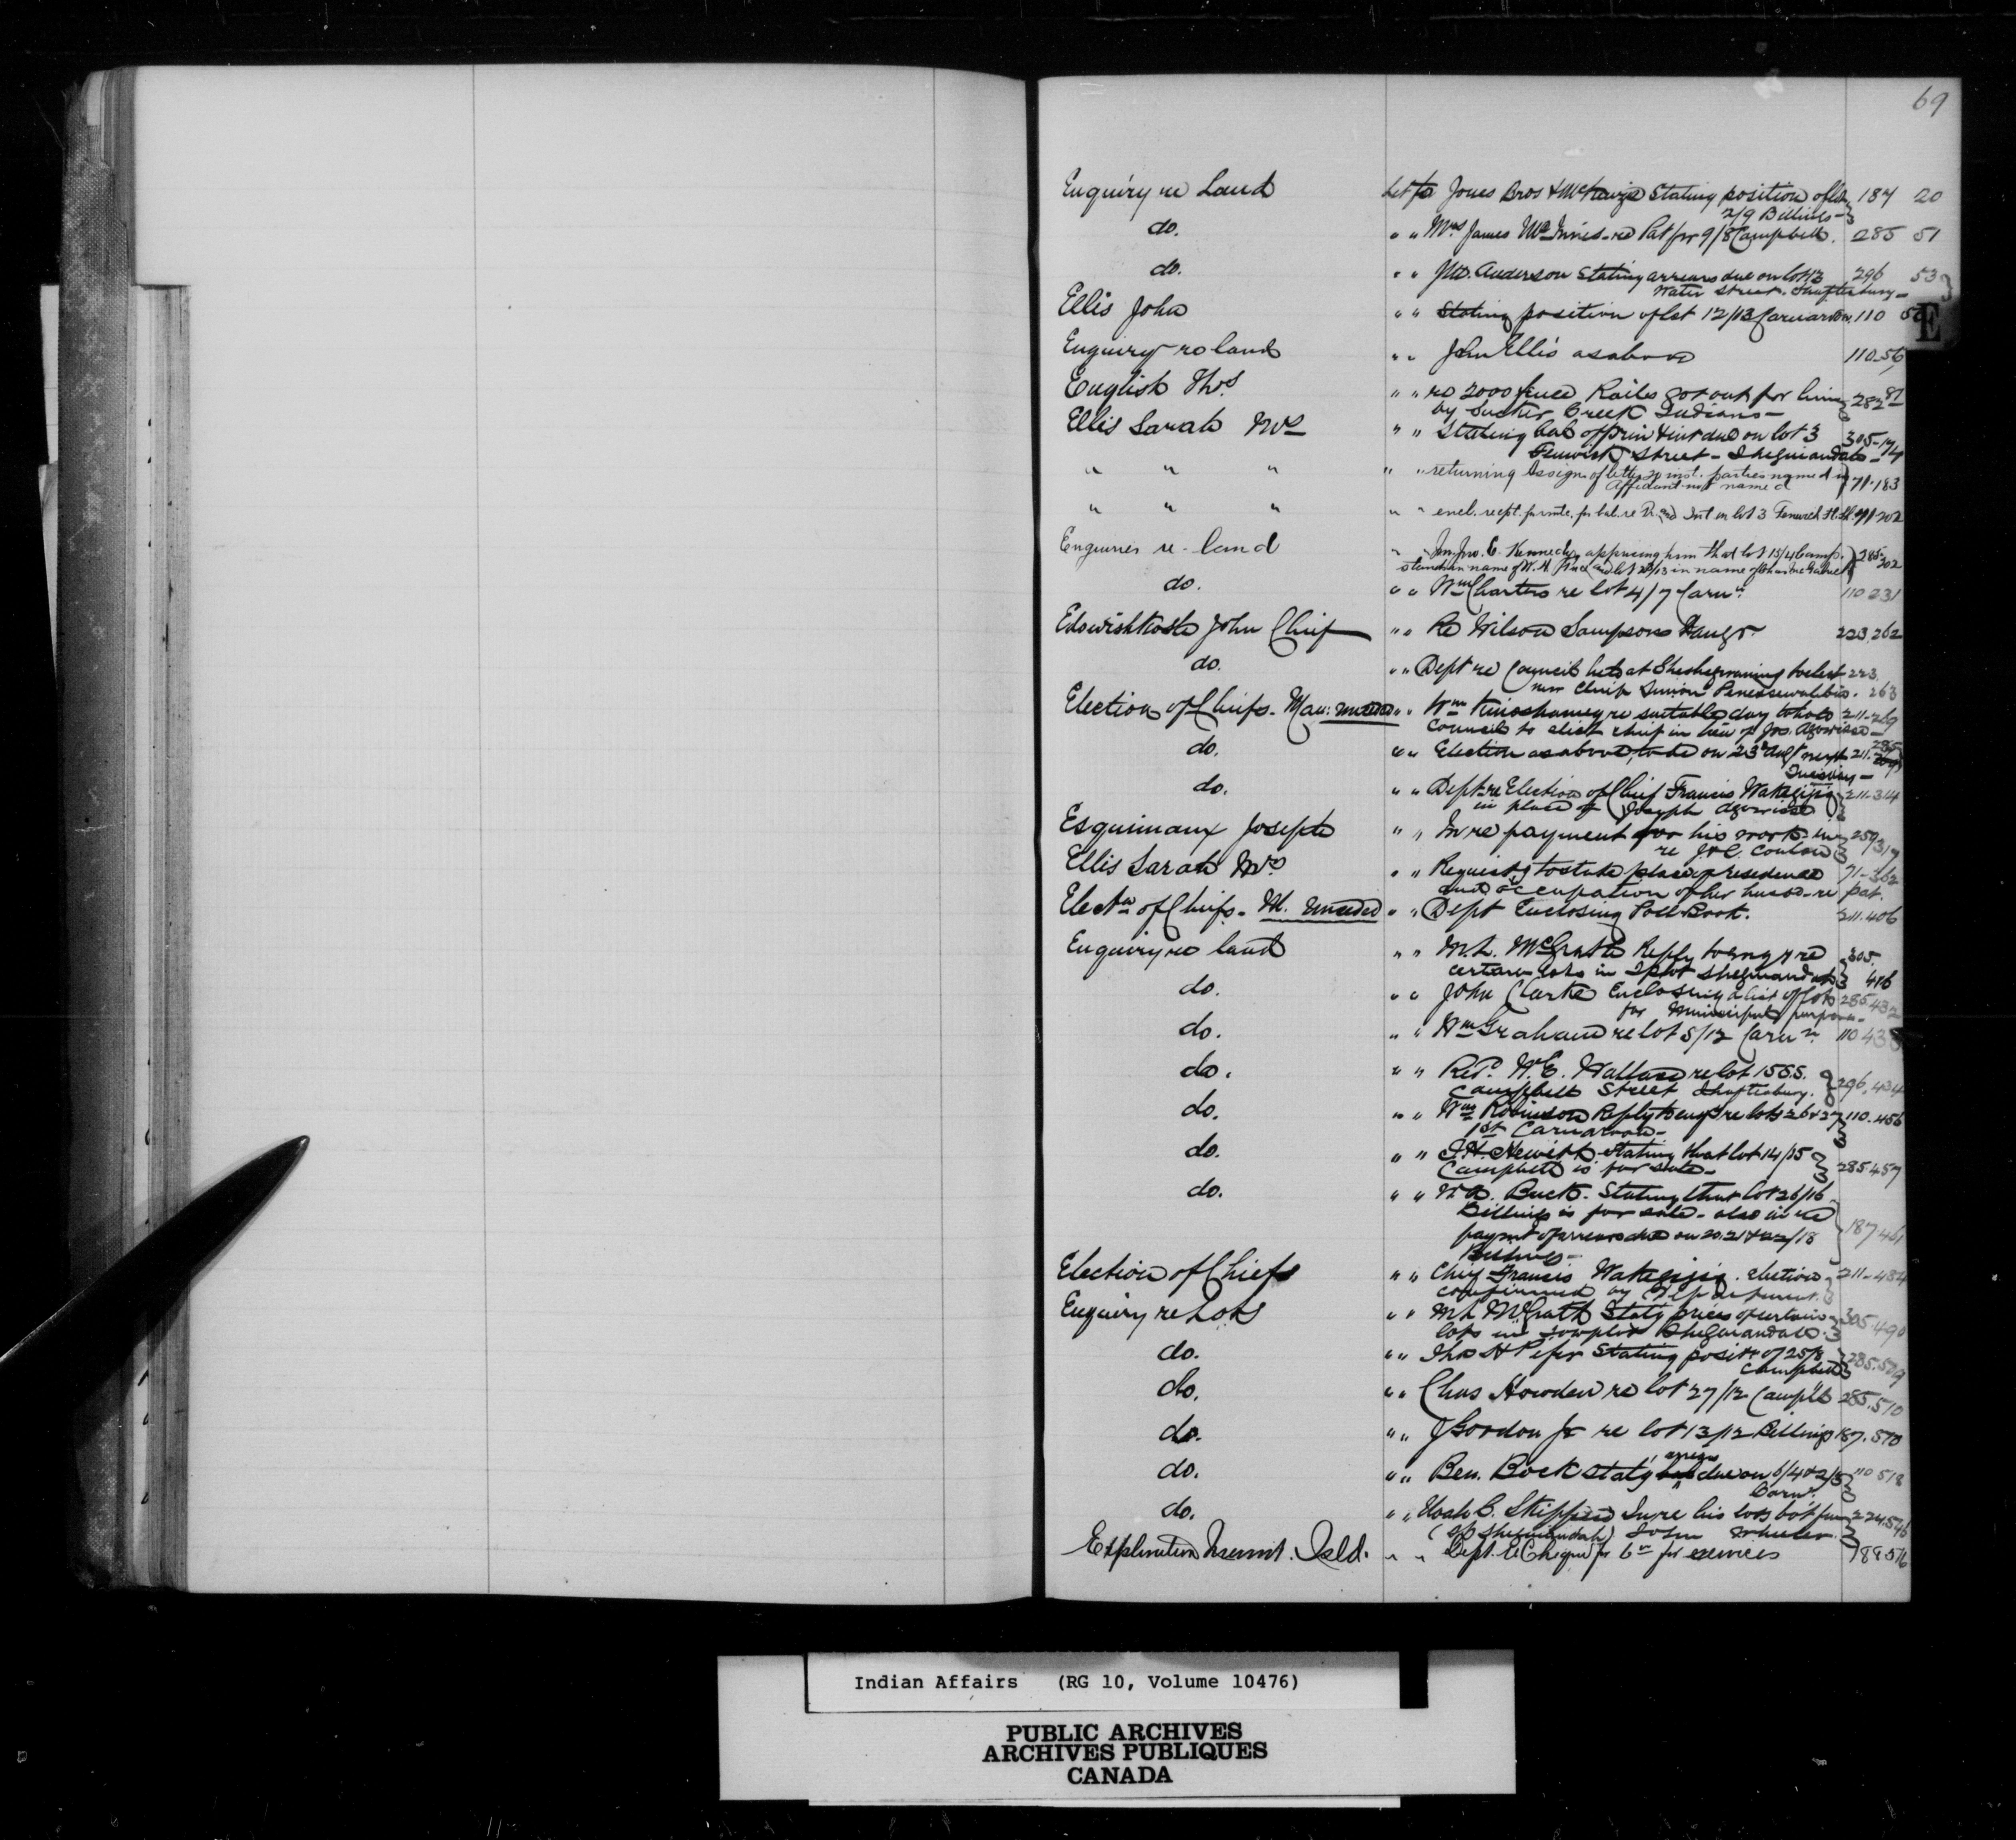 69
Enquiry re Land Let to Jones Bros & McKenzie Stating position of lot 187 20
2/9 Billings
do. " " Mrs James McInnis re Pat for 9/8 Campbell. 285 51
do. " " Jno. Anderson Stating arrears due on lot 13 296 53
Water Street. Shaftesbury
E
Ellis John " " Stating position of lot 12/13 Carnarvon. 110 56
Enquiry re land " " John Ellis as above 110-56
English Thos. " " re 2000 fence Rails got out for him 282 87
by Sucker Creek Indians
Ellis Sarah Mrs " " Stating bal of prin & int due on lot 3 305-174
Fenwick Street - Sheguiandah
" " " " " returning Assign. of letter 20 inst. parties named in 71-183
Affidavit not named
" " " " " encl. recpt. for bal. re Pr. and Int. on lot 3 Fenwick St. 71-202
Enquiries re land " " Jno. C. Kennedy apprising him that lot 15/4 Camp. 285-202
stands in name of W. H. and lot in name of
do. " " Wm Charters re lot 4/7 Carnn. 110 231
Edowishkosh John Chief " " Re Wilson Sampsons 223.262
do. " " Dept re Council held at Sheshegwaning to elect 223.
new Chief Simon 263
Election of Chiefs - Man: unceded " " Wm Kinoshameg re suitable day to hold 211-269
Council to elect chief in lieu of Jos. Agowissa
do. " " Election as above, to be on 23d Augt next 211. 285
Tuesday
do. " " Dept re Election of Chief Francis Wakegijig 211-314
in place of Joseph Agowissa
Esquimaux Joseph " " In re payment for his work in 259 317
re J & C. Conlon
Ellis Sarah Mrs " " Requestg to state place of residence 71-362
and occupation of her husbd - re pat.
Electn of Chiefs - M. Unceded " " Dept Enclosing Poll Book. 211.406
Enquiry re land " " M.L. McGrath Reply to enqy re 305.
certain lots in Tplot Sheguiandah 416
do. " " John Clarke Enclosing a list of lots 285.432
for Municipal purposes
do. " " Wm Graham re lot 5/12 Carnn. 110 433
do. " " Revd. W. E. Wallace re lot 15 S.S. 296.434
Campbell Street Shaftesbury.
do. " " Wm Robinson Reply to enqy re lots 26 & 27 110.456
1st Carnarvon
do. " " Hewitt - Stating that lot 14/15 285.457
Campbell is for sale
do. " " Buck. Stating that lot 26/16
Billings is for sale - also in re 187.461
paymt of arrears due on 20.21 & 22/18
Billings
Election of Chiefs " " Chief Francis Wakegijig. election 211-484
confirmed by Department.
Enquiry re Lots " " M L McGrath Statg prices of certain 305.490
lots in townplot Sheguiandah.
do. " " Thos H Stating positn of 25/8 285.509
Campbell
do. " " Chas Howden re lot 27/12 Campbll 285.510
do. " " J Gordon Jr re lot 13/12 Billings 187.510
do. " " Ben. Bock statg arrears due on 6/4 & 2/5 110 518
Carnn.
do. " " Noah C. In re his lots bot from 224.546
(Sheguiandah) John Wheeler.
Exploration Mermt. Isld. " " Dept. E Cheque for for services 189.576
Indian Affairs (RG 10, Volume 10476)
PUBLIC ARCHIVES
ARCHIVES PUBLIQUES
CANADA